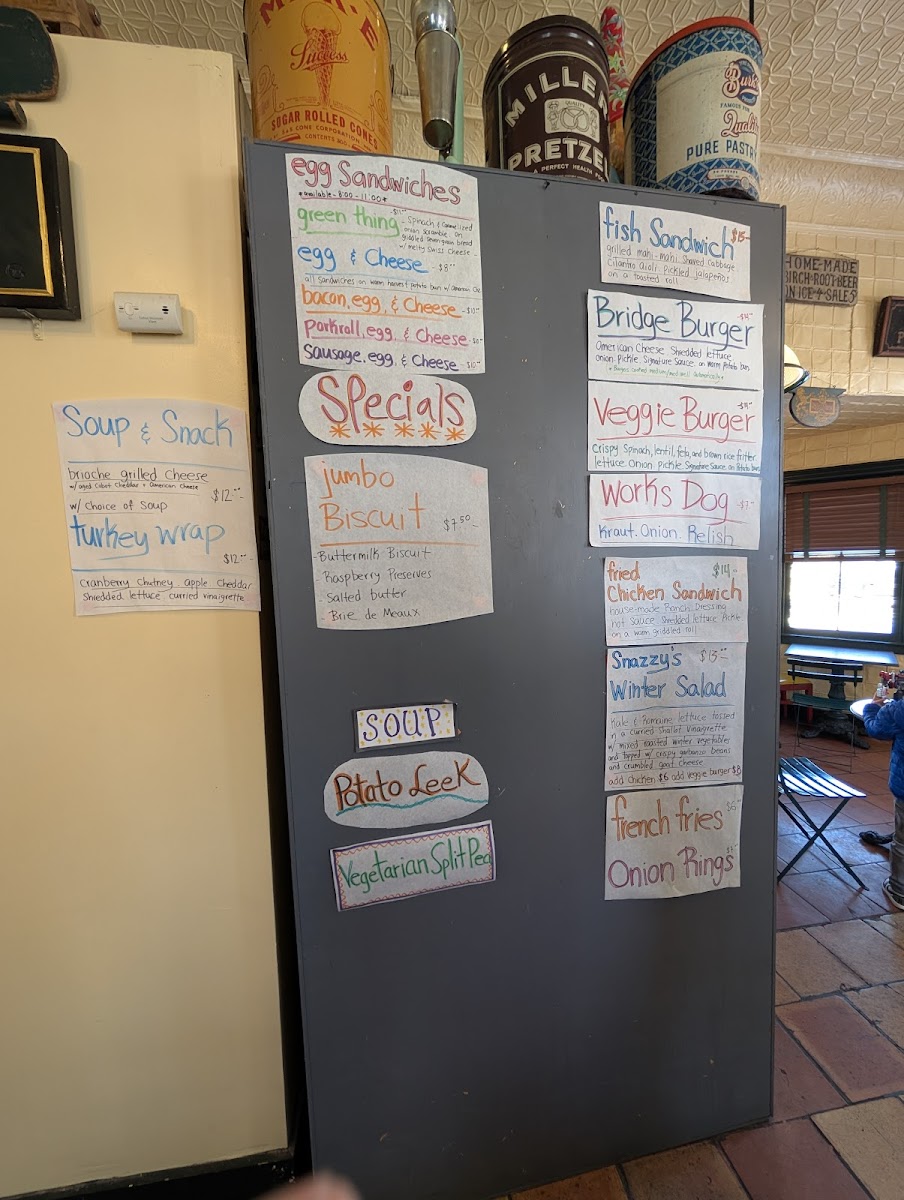 MAR-E
Success
SUGAR ROLLED CONES
CONE CORPORATION
MILLER
QUALITY
PRETZE
A PERFECT HEALTH
Burke
FAMOUS FOR
Quality
PURE PASTR
HOME-MADE
BIRCH-ROOT-BEER
SALES
Soup & Snack
brioche grilled Cheese
w/aged Cabot Cheddar & American Cheese
$12.--
w/ Choice of Soup
turkey wrap
$12.--
Cranberry Chutney. apple. Cheddar.
Shredded lettuce curried vinaigrette
egg Sandwiches
*available - 8:00 - 11:00*
green thing
- Spinach & Caramelized
onion Scramble on
griddled Seven grain bread
w/ melty Swiss Cheese -
egg & Cheese -$8
all Sandwiches on warm potato bun w/ American Che
bacon, egg, & Cheese -$10
Porkroll, egg, & Cheese
Sausage, egg, & Cheese -$10
Specials
*****
jumbo
Biscuit $7.50-
- Buttermilk Biscuit
- Raspberry Preserves
- Salted butter
- Brie de Meaux
SOUP
Potato Leek
Vegetarian Split Pea
fish Sandwich $15-
grilled mahi-mahi. Shaved Cabbage
Cilantro Aioli. Pickled jalapeños
on a toasted roll
Bridge Burger
American Cheese. Shredded lettuce.
onion. pickle. Signature Sauce. on warm potato bun.
Veggie Burger
Crispy Spinach, lentil, feta, and brown rice fritter.
lettuce. Onion. Pickle. Signature Sauce on Potato bun
Works Dog -$7-
Kraut. Onion. Relish
fried $14.--
Chicken Sandwich
house-made Ranch Dressing
hot Sauce Shredded lettuce Pickle
on a warm griddled roll
Snazzy's $13.--
Winter Salad
Kale & Romaine lettuce tossed
in a curried Shallot vinaigrette
w/ mixed roasted winter vegetables
and topped w/ crispy garbanzo beans
and crumbled goat cheese
add chicken $6 add veggie burger $8
french fries $6
Onion Rings